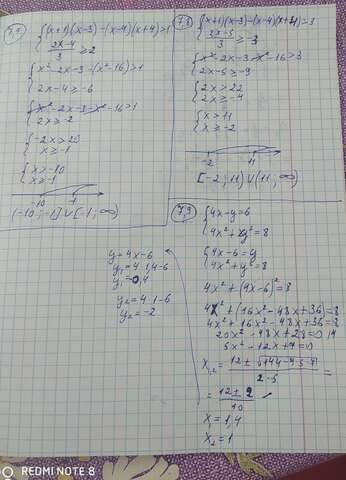 7.7
{(x+1)(x-3)-(x-4)(x+4)>1
{(2x-4)/3 ≥ 2
{x²-2x-3-(x²-16)>1
{2x-4≥-6
{x²-2x-3-x²-16>1
{2x≥-2
{-2x>20
{x≥-1
{x>-10
{x≥-1
-10 -1
(-10;-1]∪[-1;∞)
7.8
{(x+1)(x-3)-(x-4)(x+4)=3
{(2x-5)/3 ≥ -3
{x²-2x-3-x²-16>3
{2x-5≥-9
{2x>22
{2x≥-4
{x>11
{x≥-2
-2 11
[-2;11)∪(11;∞)
7.9
{4x-y=6
{4x²+y²=8
{4x-6=y
{4x²+y²=8
4x²+(4x-6)²=8
4x²+(16x²-48x+36)=8
4x²+16x²-48x+36=8
20x²-48x+28=0 |4
5x²-12x+7=0
x₁,₂=(12±√144-4·5·7)/(2·5)=
=(12±2)/10
x₁=1,4
x₂=1
y=4x-6
y₁=4·1,4-6
y₁=0,4
y₂=4·1-6
y₂=-2
REDMI NOTE 8